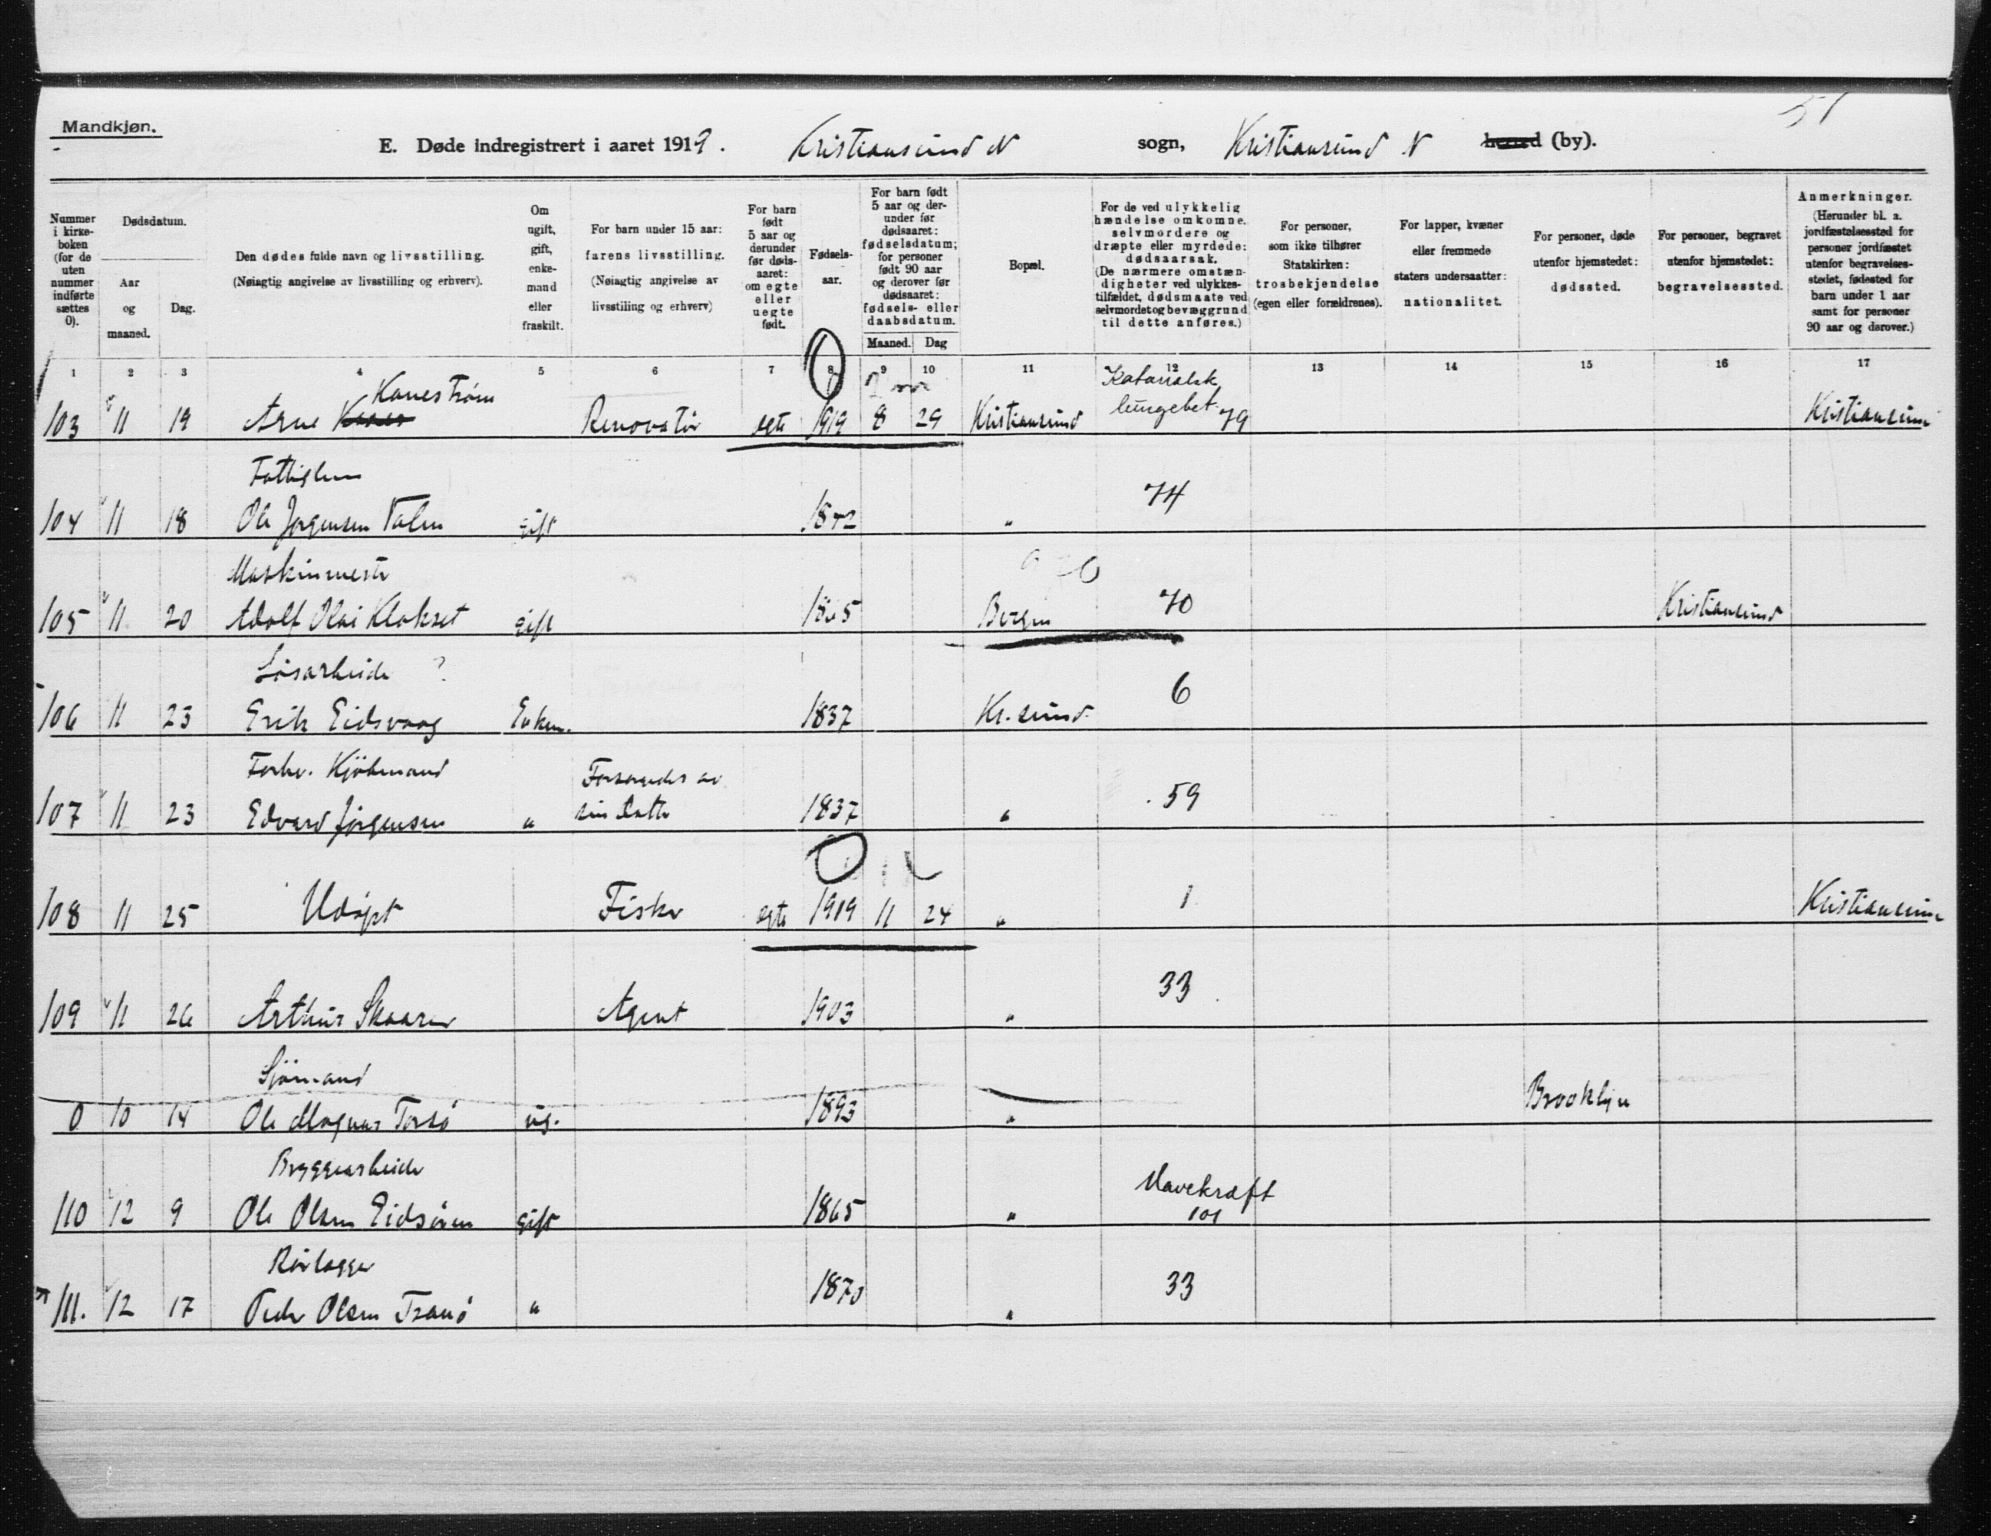 51
Mandkjøn.
E. Døde indregistrert i aaret 1919. Kristiansund N sogn, Kristiansund N herred (by).
Nummer i kirkeboken (for de uten nummer indførte sættes 0).
Dødsdatum.
Aar og maaned.
Dag.
Den dødes fulde navn og livsstilling.
(Nøiagtig angivelse av livsstilling og erhverv).
Om ugift, gift, enkemand eller fraskilt.
For barn under 15 aar: farens livsstilling.
(Nøiagtig angivelse av livsstiling og erhverv)
For barn født 5 aar og derunder før dødsaaret: om egte eller uegte født.
Fødselsaar.
For barn født 5 aar og derunder før dødsaaret: fødselsdatum; for personer født 90 aar og derover før dødsaaret: fødsels- eller daabsdatum.
Maaned. Dag
Bopæl.
For de ved ulykkelig hændelse omkomne, selvmordere og dræpte eller myrdede: dødsaarsak.
(De nærmere omstændigheter ved ulykkestilfældet, dødsmaate ved selvmordet og bevæggrund til dette anføres.)
For personer, som ikke tilhører Statskirken: trosbekjendelse (egen eller forældrenes).
For lapper, kvæner eller fremmede staters undersaatter: nationalitet.
For personer, døde utenfor hjemstedet: dødssted.
For personer, begravet utenfor hjemstedet: begravelsessted.
Anmerkninger.
(Herunder bl. a. jordfæstelsessted for personer jordfæstet utenfor begravelsesstedet, fødested for barn under 1 aar samt for personer 90 aar og derover.)
1 2 3 4 5 6 7 8 9 10 11 12 13 14 15 16 17
Kanestrøm Katarralsk
103 11 19 Arne Renovatør egte 1919 8 29 Kristiansund lungebet. 79 Kristiansund
Fattiglem
104 11 18 Ole Jørgensen Talen gift 1842 " 74
Maskinmester
105 11 20 Adolf Olai Klokset gift 1865 Bergen 70 Kristiansund
Løsarbeider ?
106 11 23 Erik Eidsvaag Enkem. 1837 Kr.sund. 6
Forhv. Kjøbmand Forsørgedes av
107 11 23 Edvard Jørgensen " sin datter 1837 " 59
108 11 25 Udøpt Fisker egte 1919 11 24 " 1 Kristiansund
109 11 26 Arthur Skaaren Agent 1903 " 33
Sjømand
0 10 14 Ole Magnus Torsø ug. 1893 " Brooklyn
Bryggearbeider Mavekræft
110 12 9 Ole Olsen Eidsøren gift 1865 " 101
Rørlægger
111. 12 17 Peder Olsen Tranø " 1870 " 33